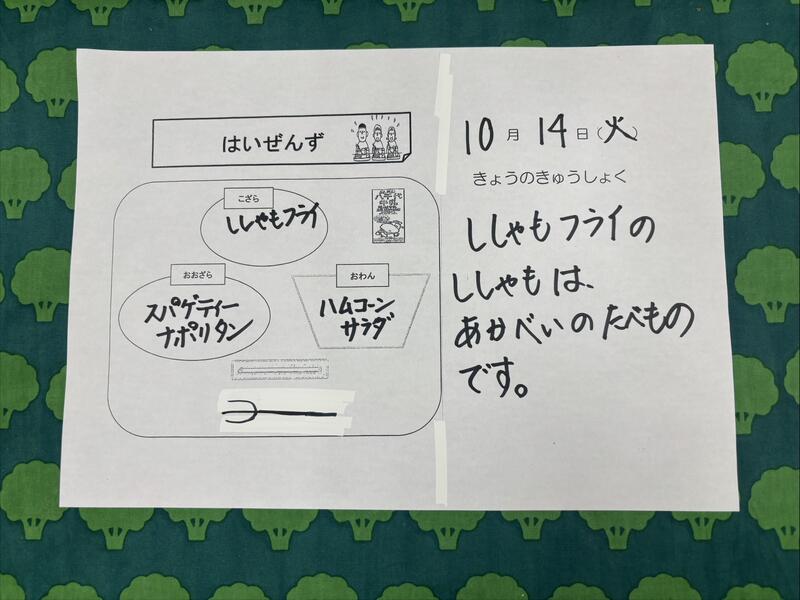 はいぜんず
こざら
ししゃもフライ
おおざら
スパゲティー
ナポリタン
おわん
ハムコーン
サラダ
10月14日(火)
きょうのきゅうしょく
ししゃもフライの
ししゃもは、
あかべいのたべもの
です。